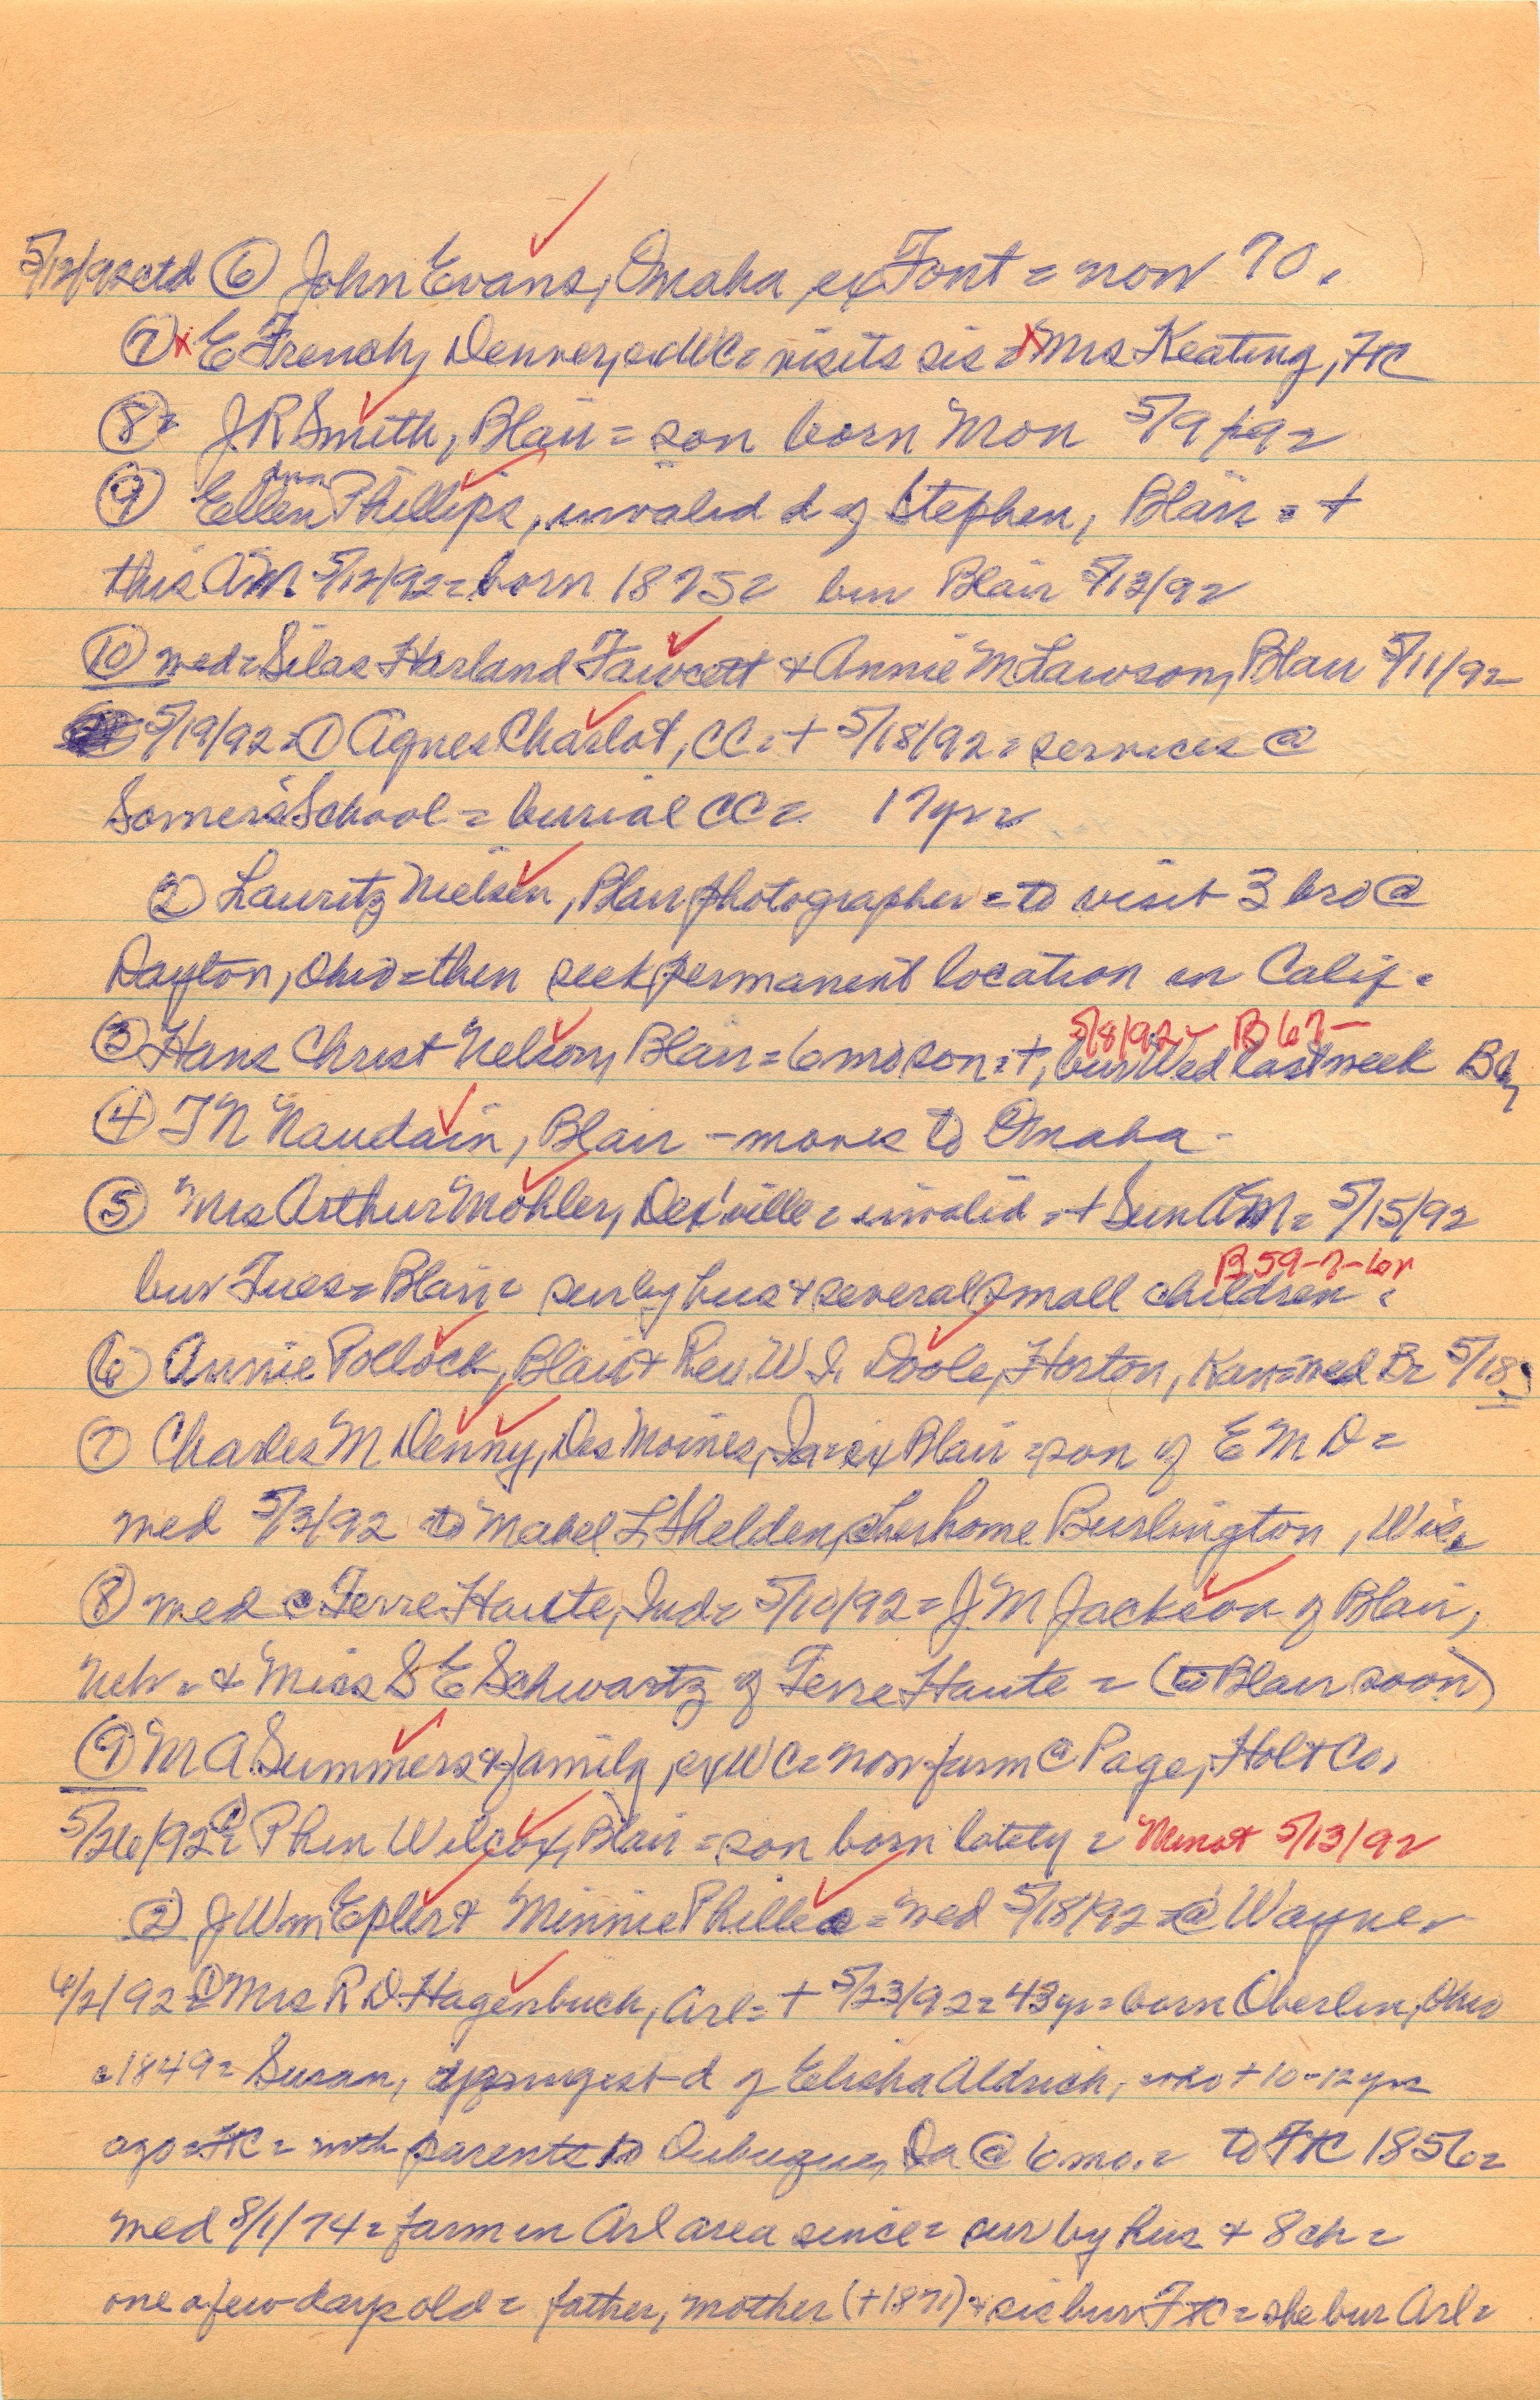 5/12/92 ctd ⑥ John Evans, Omaha, ex Font = now 70.
⑦ x E French, Denver, ex WC = visits sis = x Mrs Keating, FtC
⑧ = J R Smith, Blair = son born Mon 5/9/92
Ann
⑨ Ellen Phillips, invalid d of Stephen, Blair = +
this AM 5/12/92 = born 1875 = bur Blair 5/13/92
⑩ wed = Silas Harland Fawcett & Annie M Lawson, Blair 5/11/92
5/19/92 = ① Agnes Charlot, CC = + 5/18/92 = services @
Somers School = burial CC = 17 yr =
② Lauritz Nielsen, Blair photographer = to visit 3 bro @
Dayton, Ohio = then seek permanent location in Calif =
5/8/92 - B 67 -
③ Hans Christ Nelson, Blair = 6 mo son = +, bur Wed last week
④ T N Naudain, Blair - moves to Omaha -
⑤ Mrs Arthur Mohler, DeS'ville = invalid = + Sun AM = 5/15/92
B 59-7-
bur Tues = Blair = sur by hus & several small children =
⑥ Annie Pollock, Blair & Rev. W. S. Doole, Horton, Kan = wed 5/18
⑦ Charles M Denny, Des Moines, Ia = ex Blair = son of E M D =
wed 5/3/92 to Mabel L Shelden, @ her home Burlington, Wis =
⑧ wed @ Terre Haute, Ind = 5/10/92 = J. M Jackson of Blair,
Neb = & Miss S E Schwartz of Terre Haute = (to Blair soon)
⑨ M A Summers & family, ex WC = now farm @ Page, Holt Co.
5/26/92 = ① Phin Wilcox, Blair = son born lately = 5/13/92
② J Wm Epler & Minnie = wed 5/18/92 = @ Wayne
6/2/92 = ① Mrs R D Hagenbuch, Arl = + 5/23/92 = 43 yr = born Oberlin, Ohio
1849 = Susan, youngest d of Elisha Aldrich, who + 10-12 yrs
ago = FtC = with parents to Dubuque, Ia @ 6 mo. = to FtC 1856 =
wed 8/1/74 = farm in Arl area since = sur by hus & 8 ch =
one a few days old = father, mother (+1871) & sis bur FtC = she bur Arl =